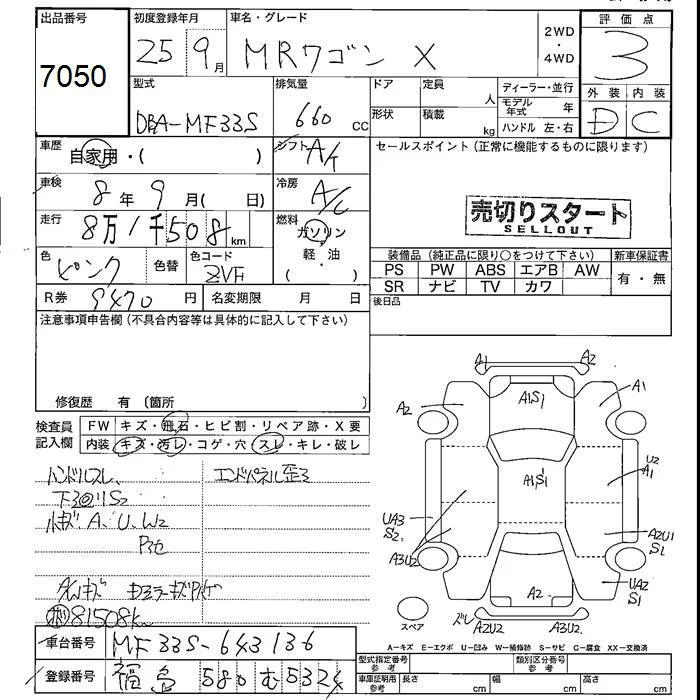 出品番号
7050
初度登録年月
25 9月
車名・グレード
MRワゴン X
2WD
・
4WD
評価点
3
外装 内装
D C
型式
DBA-MF33S
排気量
660 CC
ドア 定員 人
形状 積載 kg
ディーラー・並行
モデル年式 年
ハンドル 左・右
車歴
自家用・( )
シフト A/T
セールスポイント (正常に機能するものに限ります)
車検
8年 9月( 日)
冷房 A/C
売切りスタート
SELLOUT
走行
8万1千508km
燃料
ガソリン
軽・油
( )
色
ピンク
色替
色コード
ZVF
装備品 (純正品に限り○をつけて下さい)
新車保証書
PS PW ABS エアB AW
SR ナビ TV カワ
有・無
R券 9470円
名変期限 月 日
後日品
注意事項申告欄 (不具合内容等は具体的に記入して下さい)
修復歴 有 〔箇所 〕
検査員記入欄
FW キズ・飛石・ヒビ割・リペア跡・X要
内装 キズ・汚レ・コゲ・穴・スレ・キレ・破レ
ハンドルスレ エンドパネル歪3
下3@リS2
ルーキズ A、U、W2
81508km
車台番号 MF33S-643136
登録番号 福島 580 む 5324
A1 A2
A2 A1S1 A1
U2
A1
A1S1
UA3
S2
A3U2
A2U1
S1
UA2
S1
A2
A2U2 A3U2
スペア
A-キズ E-エクボ U-凹み W-補修跡 S-サビ C-腐食 XX-交換済
型式指定番号 参考
類別区分番号 参考
車庫証明用 参考
長さ cm
幅 cm
高さ cm